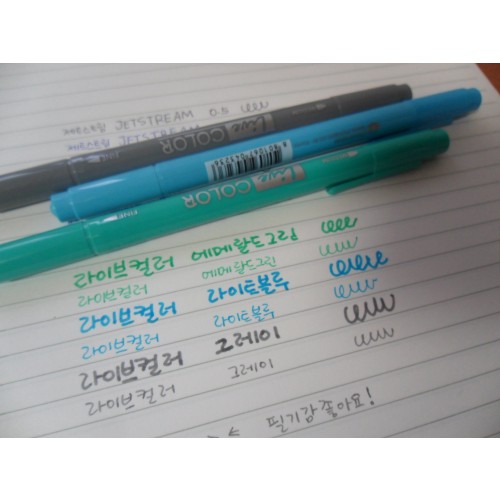 제트스트림 JETSTREAM 0.5
제트스트림 JETSTREAM
Live COLOR
Live COLOR
FINE
라이브컬러 에메랄드그린
라이브컬러 에메랄드그린
라이브컬러 라이트블루
라이브컬러 라이트블루
라이브컬러 그레이
라이브컬러 그레이
필기감 좋아요!